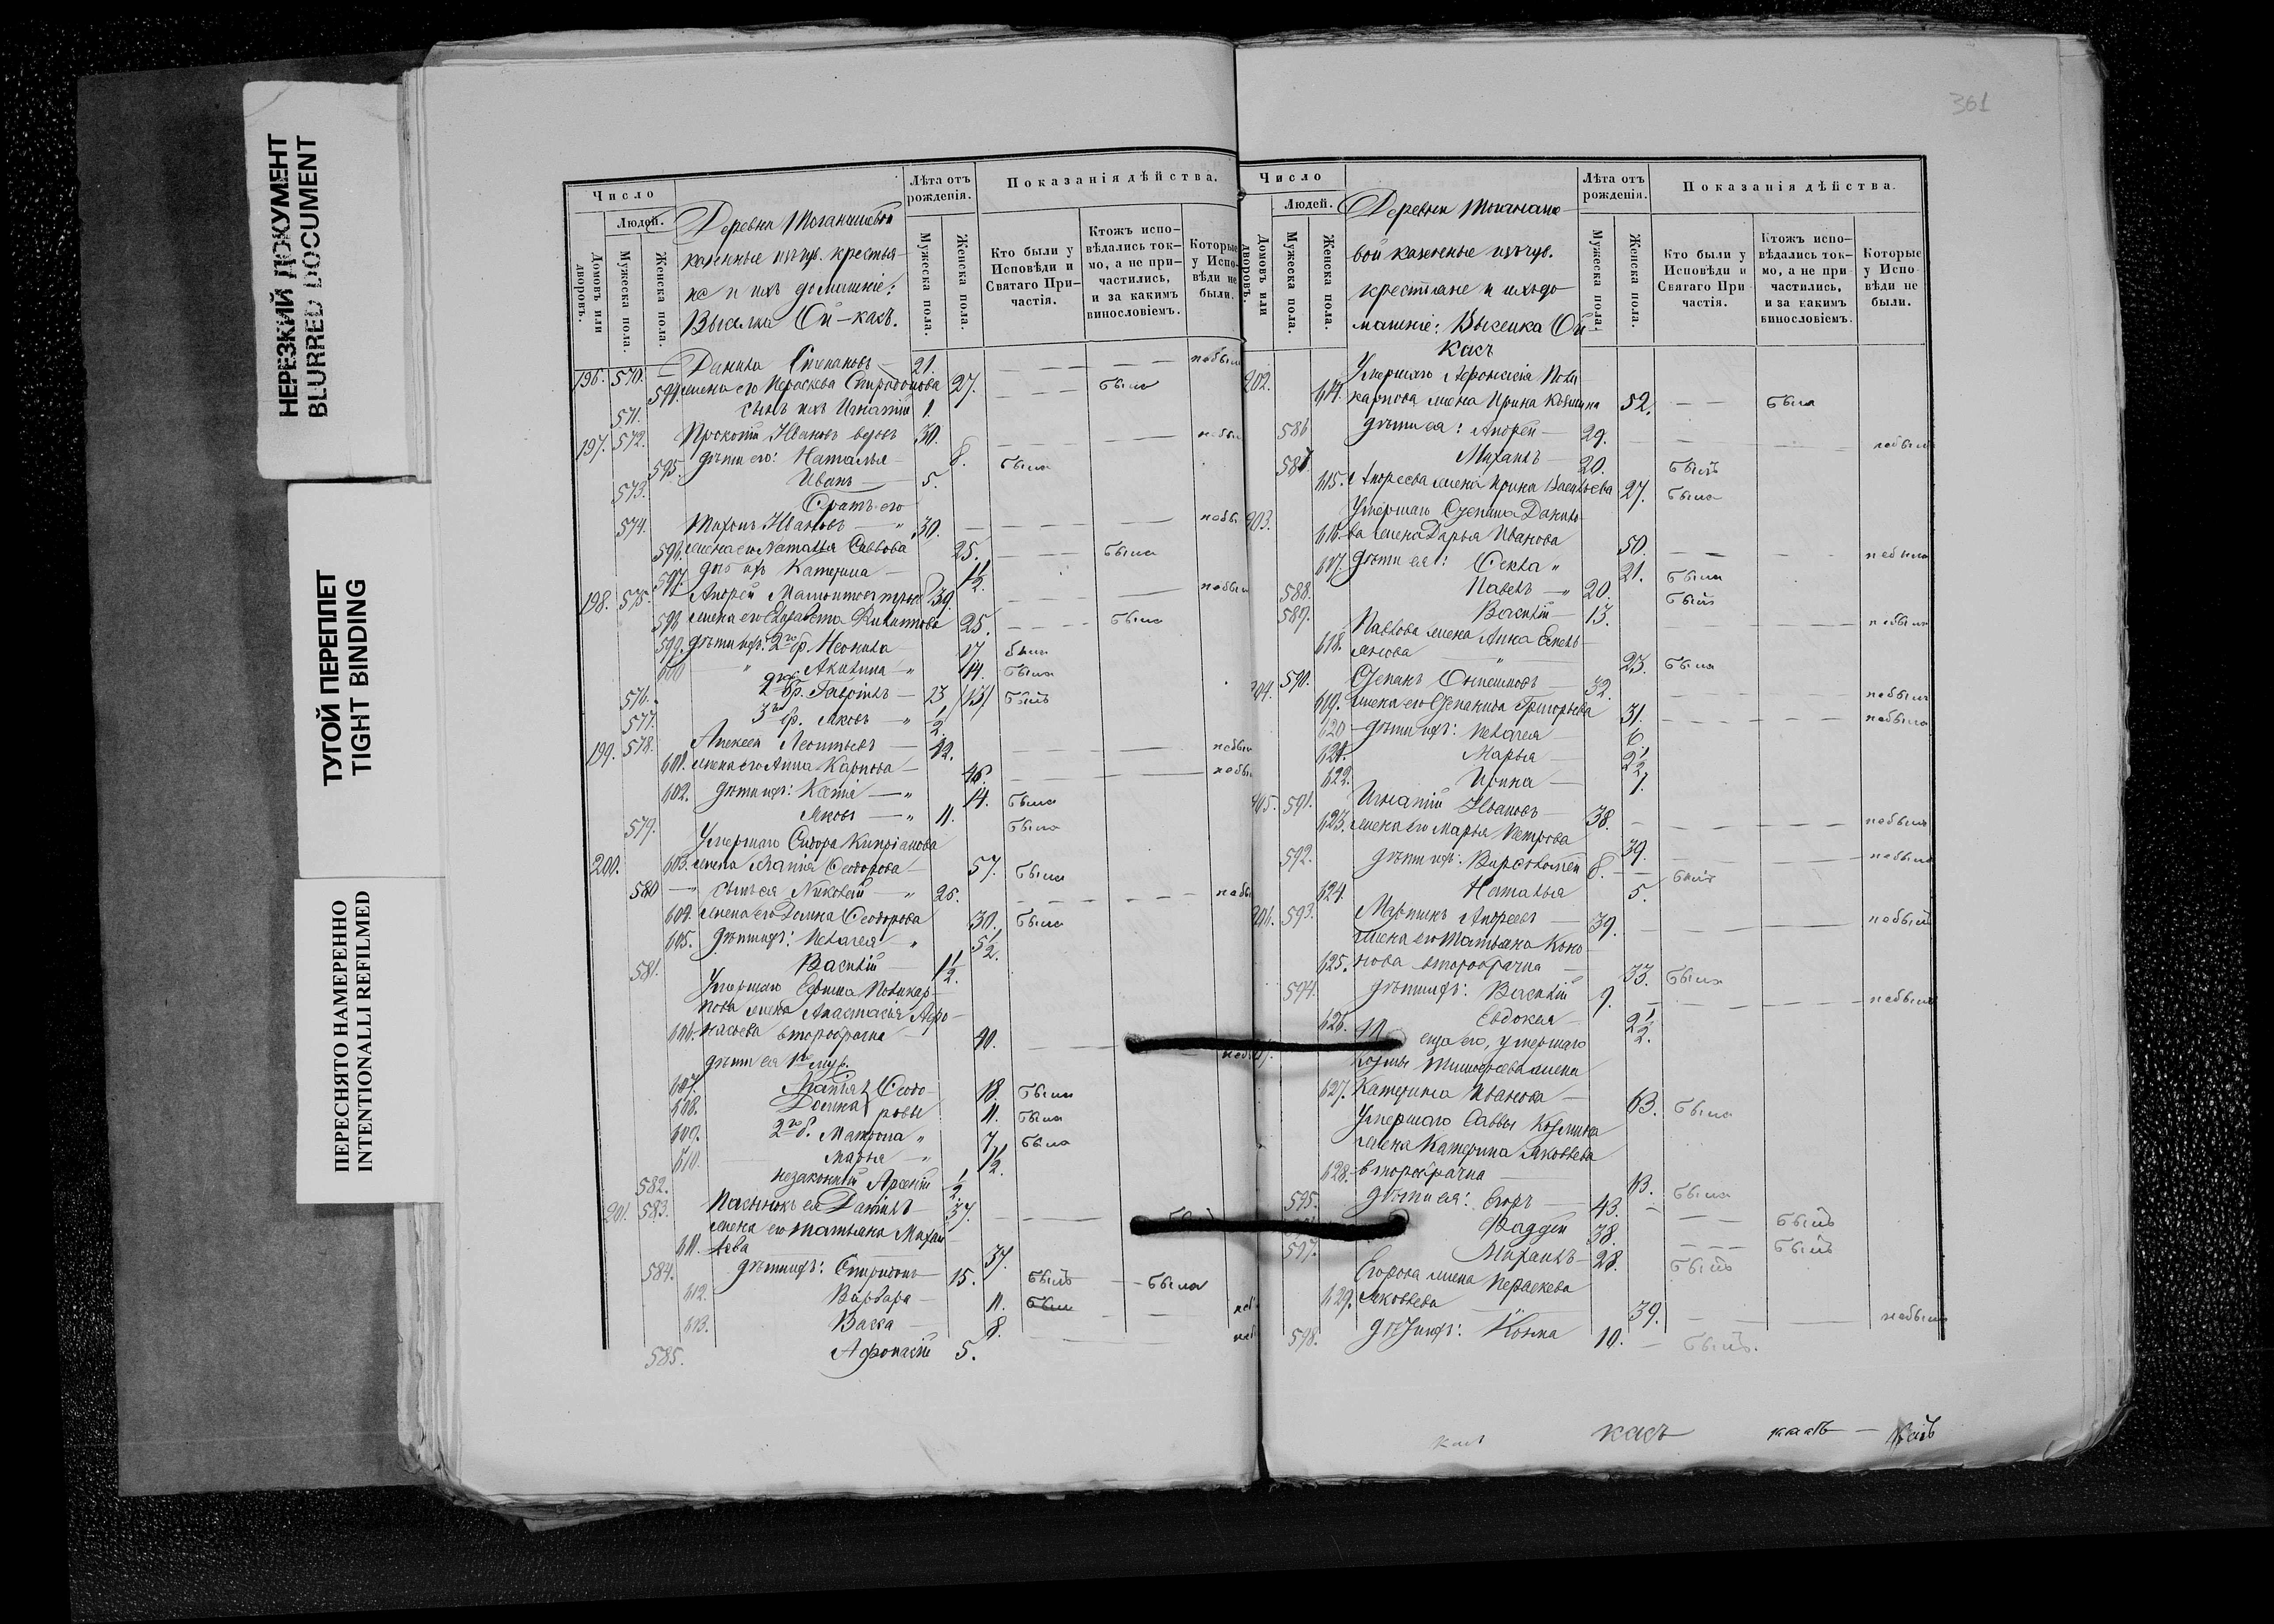 НЕРЕЗКИЙ ДОКУМЕНТ
BLURRED DOCUMENT
ТУГОЙ ПЕРЕПЛЕТ
TIGHT BINDING
ПЕРЕСНЯТО НАМЕРЕННО
INTENTIONALLI REFILMED
Число
Людей.
Домовъ или дворовъ.
Мужеска пола.
Женска пола.
Деревни
казенные крестья-
не и ихъ домашніе:
Ой-касъ.
Лѣта отъ рожденія.
Мужеска пола.
Женска пола.
Показанія дѣйства.
Кто были у Исповѣди и Святаго При-частія.
Ктожъ испо-вѣдались ток-мо, а не при-частились, и за какимъ винословіемъ.
Которые у Испо-вѣди не были.
196. 570. — Данила Степановъ — 21. — небылъ
594. жена его Параскева Спиридонова 27. — была
571. сынъ ихъ Игнатій 1.
197. 572. Прокопій Ивановъ вдовъ 30. —
595. дѣти его: Наталья — 8. была
573. Иванъ — 5.
братъ его
574. Тихонъ Ивановъ — 30. —
596. жена его Наталья Саввова 25. — была
597. дочь ихъ Катерина — 1½.
198. 575. Андрей 39. —
598. жена его Елизавета Филиппова 25. — была
599. дѣти ихъ: 2го б. Неонила 17 была
600 " Акилина — " 14. была
576. 2го бр. Гавріилъ — 23 (13) былъ
577. 3го бр. Яковъ — " ½.
199. 578. Алексей Леонтьевъ — 42. —
601. жена его Анна Карпова — 46. —
602. дѣти ихъ: Ксенія — " 14. была
579. Яковъ — " 11. была
Умершаго Сидора Кипріанова
200. 603. жена Марія Ѳеодорова — 57. была
580 — сынъ ея Николай — " 26. —
604. жена его Домна Ѳеодорова 30. была
605. дѣти ихъ: Пелагея " 5½.
581. Василій — 1½.
Умершаго Ефима Поликар-
пова жена Анастасія Афо-
606. насьева второбрачна — 40. —
дѣти ея 1го муж.
607. Марія } Ѳеодо- 18. была
608. Домна } ровы 11. была
609. 2го б. Матрона " 7 была
610. Марья — " 1½.
582. незаконный Арсеній ½.
201. 583. Пасынокъ ея Даніилъ — 37. —
жена его Татьяна Михай-
611. лова 37.
584. дѣти ихъ: Спиридонъ — 15. былъ — была
612. Варвара — 11. —
613. Васса — 8. —
585. Афонасій 5.
361
Число
Людей.
Домовъ или дворовъ.
Мужеска пола.
Женска пола.
Деревни
вой казенные
крестьяне и ихъ до-
машніе: Ой-
касъ
Лѣта отъ рожденія.
Мужеска пола.
Женска пола.
Показанія дѣйства.
Кто были у Исповѣди и Святаго При частія.
Ктожъ испо-вѣдались ток-мо, а не при частились, и за какимъ винословіемъ.
Которые у Испо вѣди не были.
202. Умершаго Афонасія Поли-
614. карпова жена Ирина Козмина 52. — была
586 дѣти ея: Андрей — 29. — небылъ
587. Михаилъ — 20. былъ
615. Андреева жена Ирина Васильева 27. была
203. Умершаго Данило-
616. ва жена Дарья Иванова 50. — небыла
617. дѣти ея: Ѳекла " 21. была
588. Павелъ — " 20. былъ
589. Василій — 13. — небылъ
Павлова жена Анна Емель-
618. янова 23. была
204. 590. Степанъ 32. — небылъ
619. жена его Степанида Григорьева 31. — небыла
620 — дѣти ихъ: Пелагея — 6
621. Марья — 2½
622. Ирина — 1.
205. 591. Игнатій Ивановъ — 38. — небылъ
623. жена его Марья Петрова 39. — небыла
592. дѣти ихъ: Варѳоломей 8. — былъ
624. Наталья 5.
206. 593. Мартинъ Андреевъ — 39. — небылъ
жена его Татьяна Коно-
625. нова второбрачна — 33. была
594. дѣти ихъ: Василій 9. — небылъ
626. Евдокея — 2½.
его, умершаго
Козмы Тимофеева жена
627. Катерина Иванова — 63. была
Умершаго Саввы Козмина
жена Катерина Яковлева
628. второбрачна 63. была
595. дѣти ея: Егоръ — 43. — былъ
Фаддей 38. — былъ
597. Михаилъ — 28. былъ
Егорова жена Параскева
629. Яковлева 39. — небыла
598. дѣти ихъ: Козма 10. — былъ.
касъ касъ касъ —